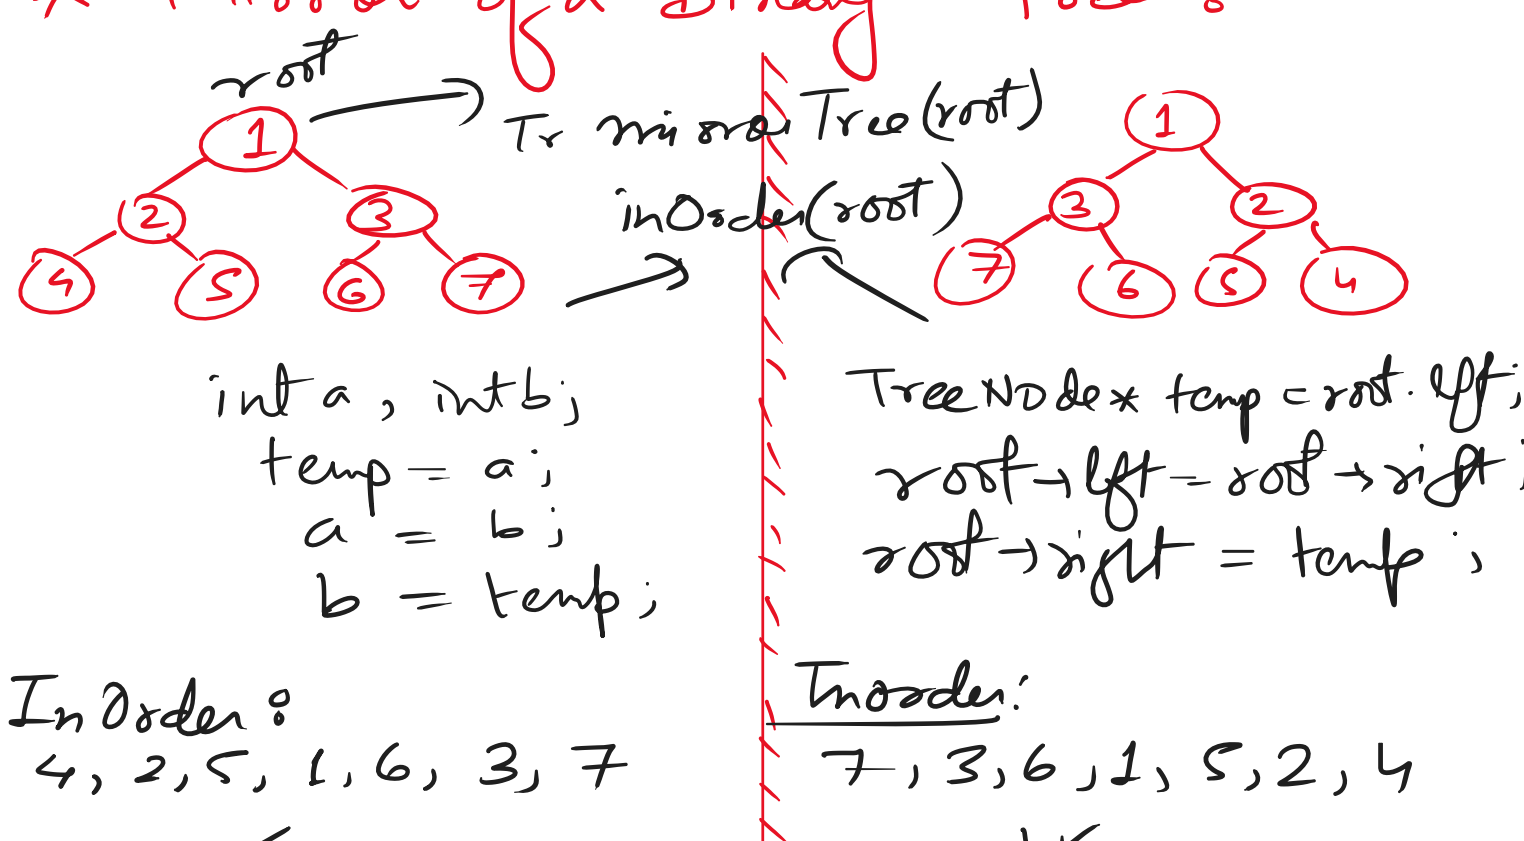 of a Binary Tree :
root
1
2 3
4 5 6 7
Tr mirror Tree (root)
inOrder (root)
1
3 2
7 6 5 4
int a , int b ;
temp = a ;
a = b ;
b = temp ;
TreeNode* temp = root. left ;
root → left = root → right ;
root → right = temp ;
InOrder :
4, 2, 5, 1, 6, 3, 7
Inorder :
7, 3, 6, 1, 5, 2, 4